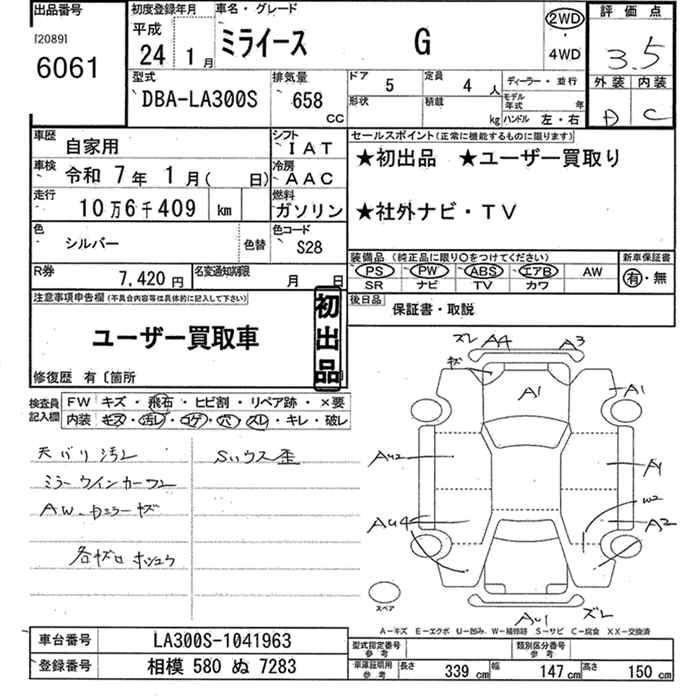 出品番号
[2089]
6061
初度登録年月
平成
24 1月
車名・グレード
ミライース G
2WD
・
4WD
評価点
3.5
外装 内装
D C
型式
DBA-LA300S
排気量
658 CC
ドア 5
定員 4 人
形状
積載 kg
ディーラー・並行
モデル年式 年
ハンドル 左・右
車歴 自家用
シフト IAT
車検 令和 7年 1月( 日)
冷房 AAC
走行 10万6千409 km
燃料 ガソリン
色 シルバー
色替
色コード S28
R券 7,420円
名変通知期限 月 日
セールスポイント(正常に機能するものに限ります)
★初出品 ★ユーザー買取り
★社外ナビ・TV
装備品 (純正品に限り○をつけてください)
PS PW ABS エアB AW
SR ナビ TV カワ
新車保証書
有・無
後日品
保証書・取説
注意事項申告欄(不具合内容等は具体的に記入して下さい)
ユーザー買取車
初出品
修復歴 有〔箇所
検査員記入欄
FW キズ・飛石・ヒビ割・リペア跡・×要
内装 キズ・汚レ・コゲ・穴・スレ・キレ・破レ
天バリ汚レ
Sハウス歪
ミラーウインカーワレ
AW.カラーキズ
各キズ凹
ズレ A4 A3
キズ
A1
A1
AU2
AU4
W2
A2
AU1
ズレ
スペア
A―キズ E―エクボ U―凹み W―補修跡 S―サビ C―腐食 XX―交換済
車台番号 LA300S-1041963
登録番号 相模 580 ぬ 7283
型式指定番号
参考
類別区分番号
参考
車庫証明用
参考
長さ 339 cm 幅 147 cm 高さ 150 cm